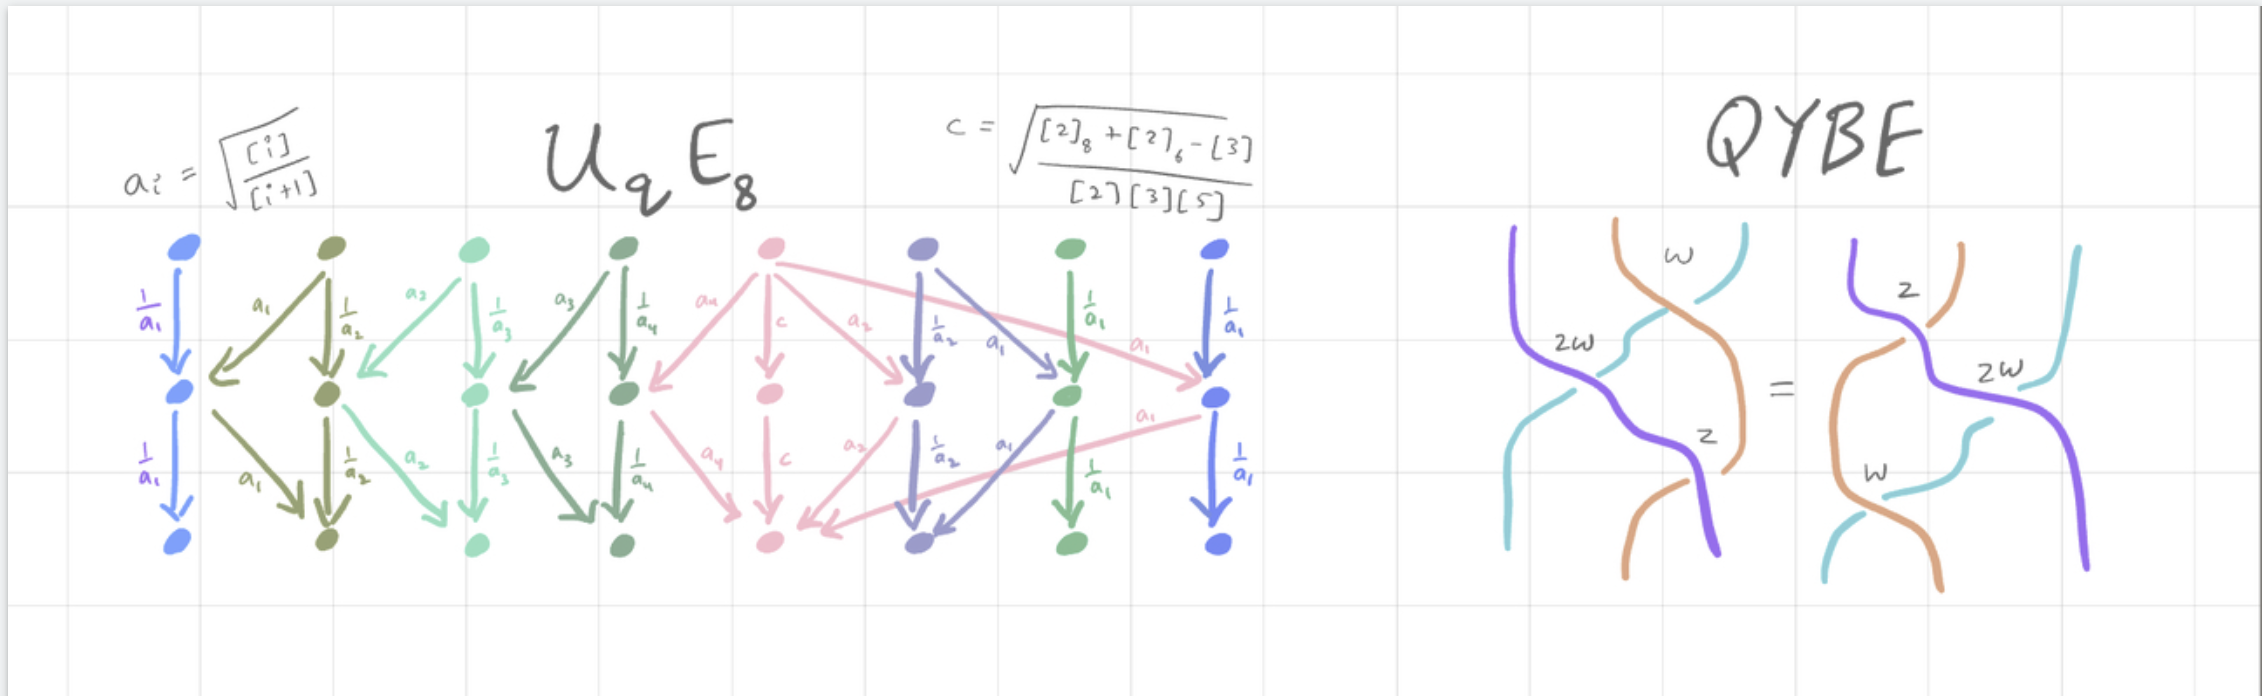 a_i = √([i]/[i+1])
U_q E_8
c = √(([2]_8 + [2]_6 - [3])/([2][3][5]))
QYBE
1/a_1 a_1 1/a_2 a_2 1/a_3 a_3 1/a_4 a_4 c a_2 1/a_2 a_1 1/a_1 a_1 1/a_1
1/a_1 a_1 1/a_2 a_2 1/a_3 a_3 1/a_4 a_4 c a_2 1/a_2 a_1 1/a_1 a_1 1/a_1
w
zw
z
=
z
zw
w